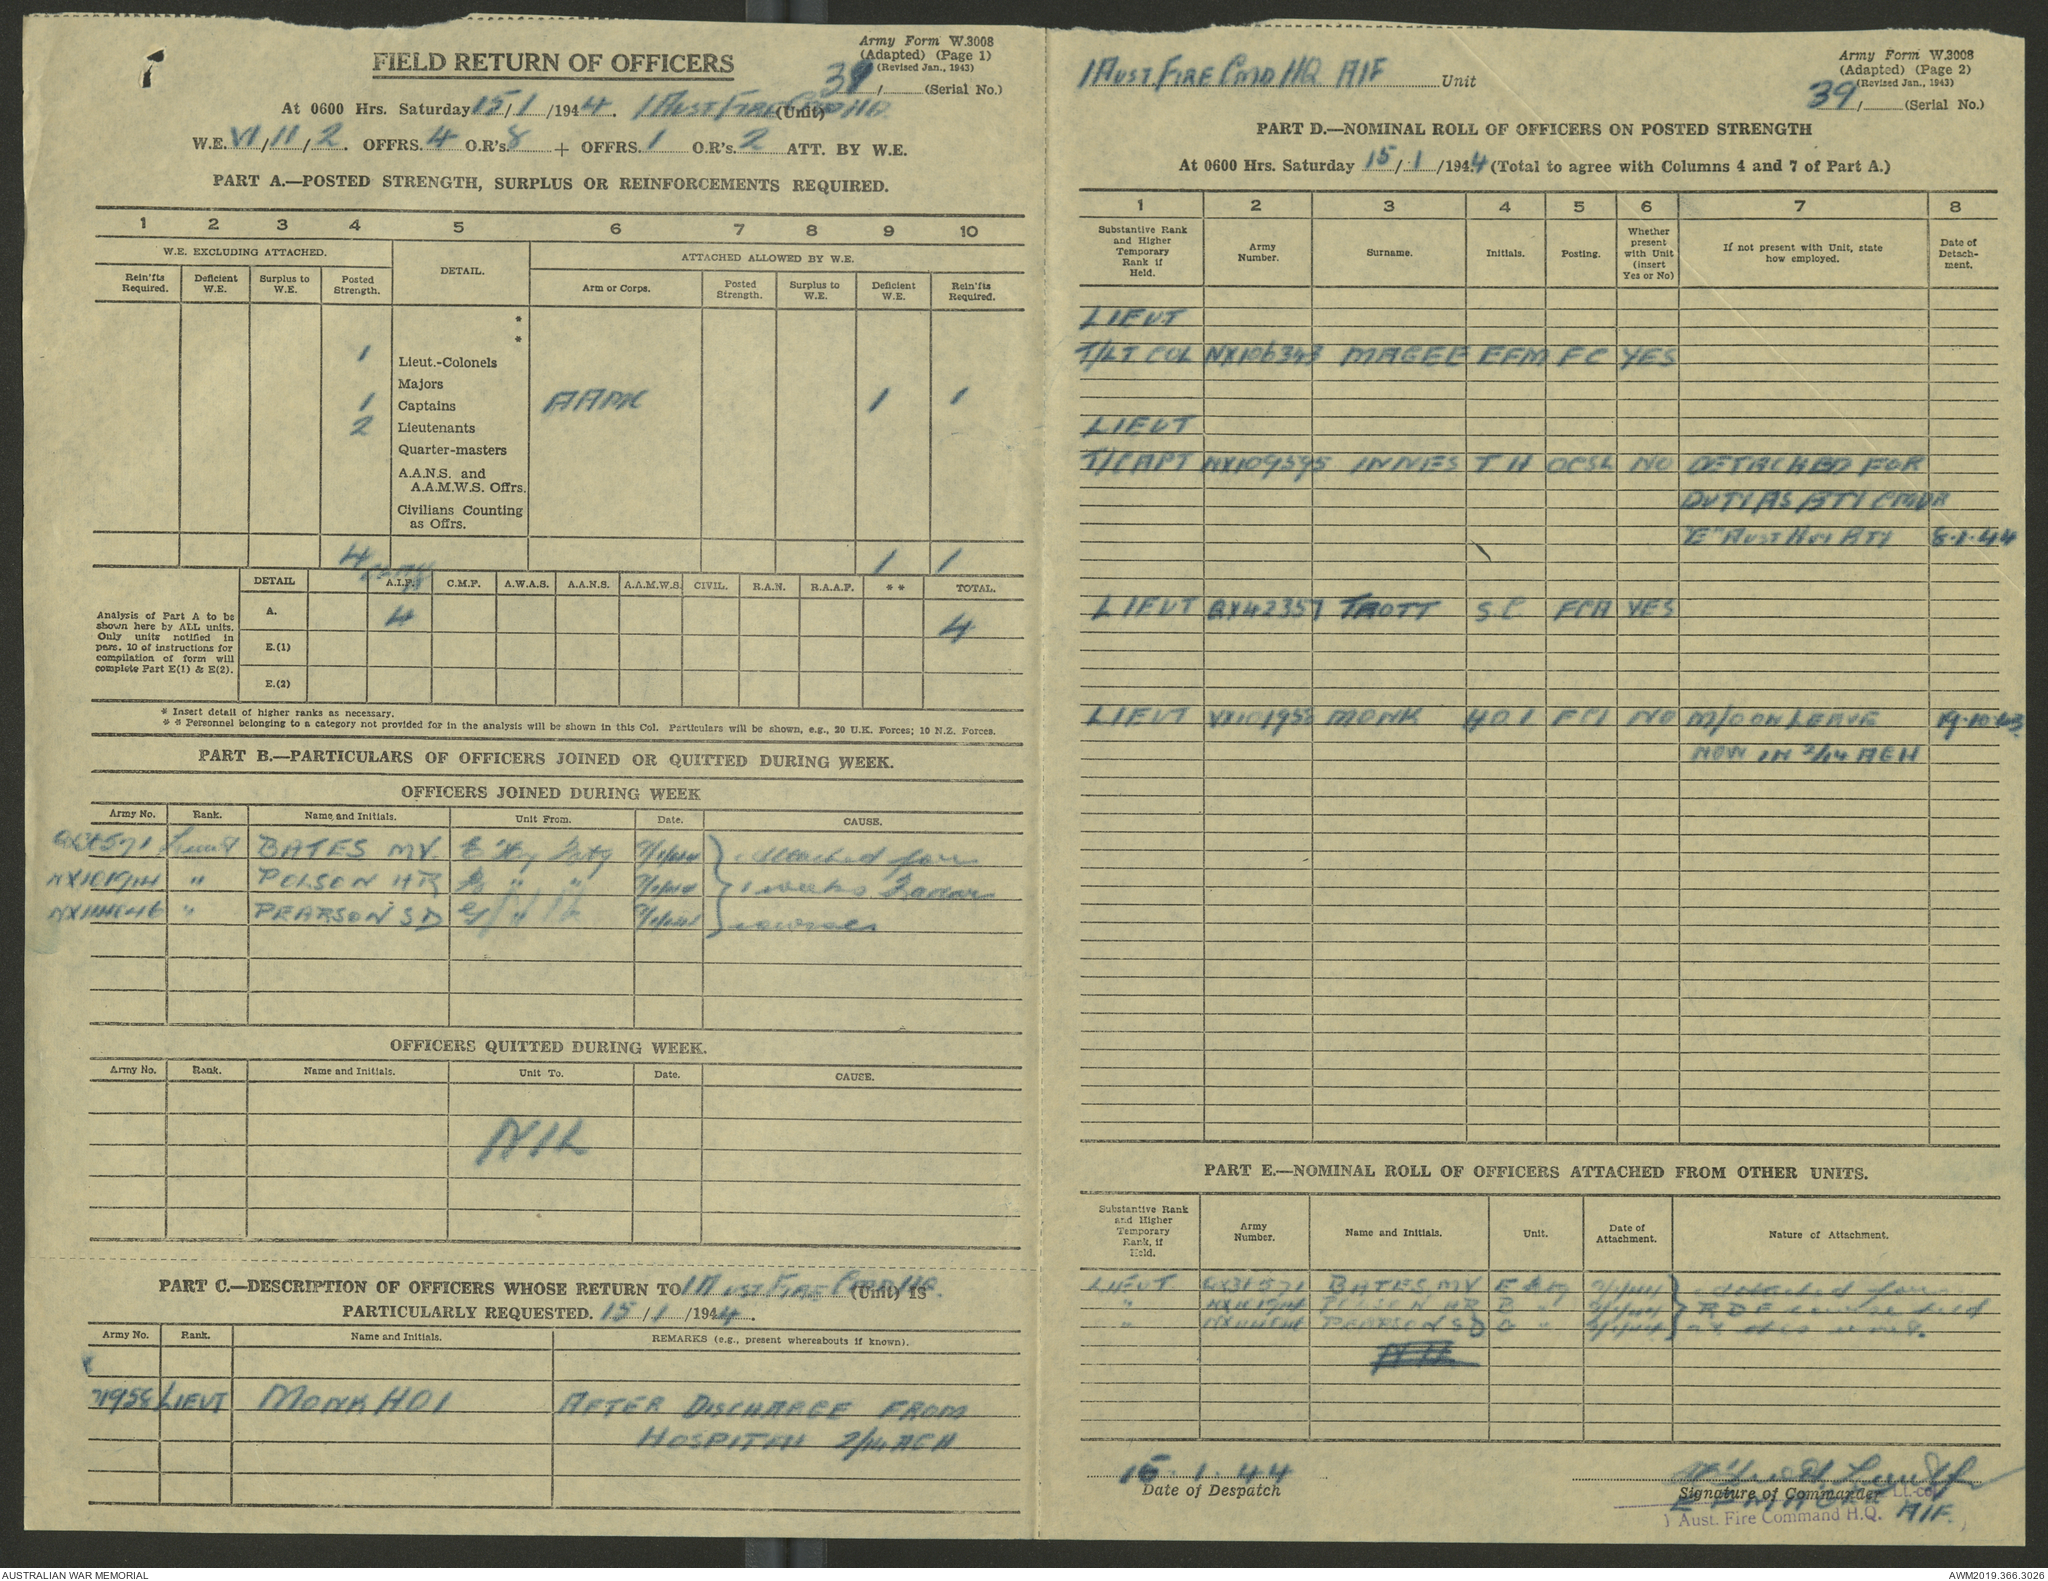 FIELD RETURN OF OFFICERS
Army Form W.3008
(Adapted) (Page 1)
(Revised Jan., 1943)
39/ (Serial No.)
At 0600 Hrs. Saturday 15/1/1944. 1 Aust Fire Comd HQ (Unit)
W.E. VI/11/2. OFFRS. 4 O.R's. 8 + OFFRS. 1 O.R's. 2 ATT. BY W.E.
PART A.—POSTED STRENGTH, SURPLUS OR REINFORCEMENTS REQUIRED.
1 2 3 4 5 6 7 8 9 10
W.E. EXCLUDING ATTACHED. DETAIL. ATTACHED ALLOWED BY W.E.
Rein'fts Required. Deficient W.E. Surplus to W.E. Posted Strength. Arm or Corps. Posted Strength. Surplus to W.E. Deficient W.E. Rein'fts Required.
*
*
1 Lieut.-Colonels
Majors
1 Captains AAMC 1 1
2 Lieutenants
Quarter-masters
A.A.N.S. and
A.A.M.W.S. Offrs.
Civilians Counting
as Offrs.
4 1 1
DETAIL A.I.F. C.M.F. A.W.A.S. A.A.N.S. A.A.M.W.S. CIVIL. R.A.N. R.A.A.F. ** TOTAL.
Analysis of Part A to be
shown here by ALL units.
Only units notified in
pars. 10 of instructions for
compilation of form will
complete Part E(1) & E(2).
A. 4 4
E.(1)
E.(2)
* Insert detail of higher ranks as necessary.
* * Personnel belonging to a category not provided for in the analysis will be shown in this Col. Particulars will be shown, e.g., 20 U.K. Forces; 10 N.Z. Forces.
PART B.—PARTICULARS OF OFFICERS JOINED OR QUITTED DURING WEEK.
OFFICERS JOINED DURING WEEK
Army No. Rank. Name and Initials. Unit From. Date. CAUSE.
Lieut BATES MV. E Hy Bty 9/1/44 attached for
NX101914 " POLSON HR B " " 9/1/44 weeks Radar
" PEARSON SD G " 9/1/44 course
OFFICERS QUITTED DURING WEEK.
Army No. Rank. Name and Initials. Unit To. Date. CAUSE.
NIL
PART C.—DESCRIPTION OF OFFICERS WHOSE RETURN TO 1 Aust Fire Comd HQ. (Unit) IS
PARTICULARLY REQUESTED. 15/1/1944.
Army No. Rank. Name and Initials. REMARKS (e.g., present whereabouts if known).
LIEUT MONK HOI AFTER DISCHARGE FROM
HOSPITAL 2/14 AGH
1 Aust Fire Cmd HQ AIF Unit
Army Form W.3008
(Adapted) (Page 2)
(Revised Jan., 1943)
39/ (Serial No.)
PART D.—NOMINAL ROLL OF OFFICERS ON POSTED STRENGTH
At 0600 Hrs. Saturday 15/1/1944 (Total to agree with Columns 4 and 7 of Part A.)
1 2 3 4 5 6 7 8
Substantive Rank and Higher Temporary Rank if Held. Army Number. Surname. Initials. Posting. Whether present with Unit (insert Yes or No) If not present with Unit, state how employed. Date of Detachment.
LIEUT
T/LT COL NX106343 MAGEE EFM FC YES
LIEUT
T/CAPT NX109595 INNES T H OCSL NO DETACHED FOR
DUTY AS BTY CMDR
"E" Aust Hvy Bty 8.1.44
LIEUT QX42357 TROTT S.C FCA YES
LIEUT VX101955 MONK HOI FCI NO M/D ON LEAVE 19.10.43
NOW IN 2/14 AGH
PART E.—NOMINAL ROLL OF OFFICERS ATTACHED FROM OTHER UNITS.
Substantive Rank and Higher Temporary Rank, if Held. Army Number. Name and Initials. Unit. Date of Attachment. Nature of Attachment.
LIEUT BATES, MV E Bty 9/1/44 attached for
" NX101914 POLSON HR B " 9/1/44 RDF course held
" PEARSON SD G " 9/1/44 at this unit.
15.1.44
Date of Despatch
Lt-col
Signature of Commander
E F MAGEE AIF.
Aust. Fire Command H.Q.
AUSTRALIAN WAR MEMORIAL
AWM2019.366.3026